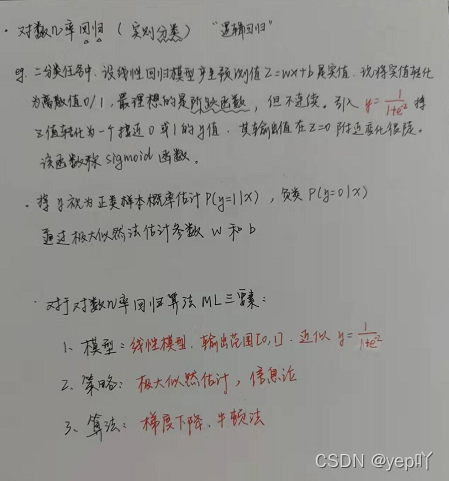 · 对数几率回归 (实则分类) "逻辑回归"
eg. 二分类任务中,设线性回归模型产生预测值 Z=wx+b 是实值,现将实值转化
为离散值0/1,最理想的是阶跃函数,但不连续。引入 y=1/(1+e^-z) 将
z值转化为一个接近0或1的y值,其输出值在Z=0附近变化很陡。
该函数称 sigmoid 函数。
· 将y视为正类样本概率估计 P(y=1|x),负类 P(y=0|x)
通过极大似然法估计参数 w 和 b
· 对于对数几率回归算法ML三要素:
1、模型:线性模型、输出范围[0,1]、近似 y=1/(1+e^-z)
2、策略:极大似然估计,信息论
3、算法:梯度下降、牛顿法
CSDN @yep吖